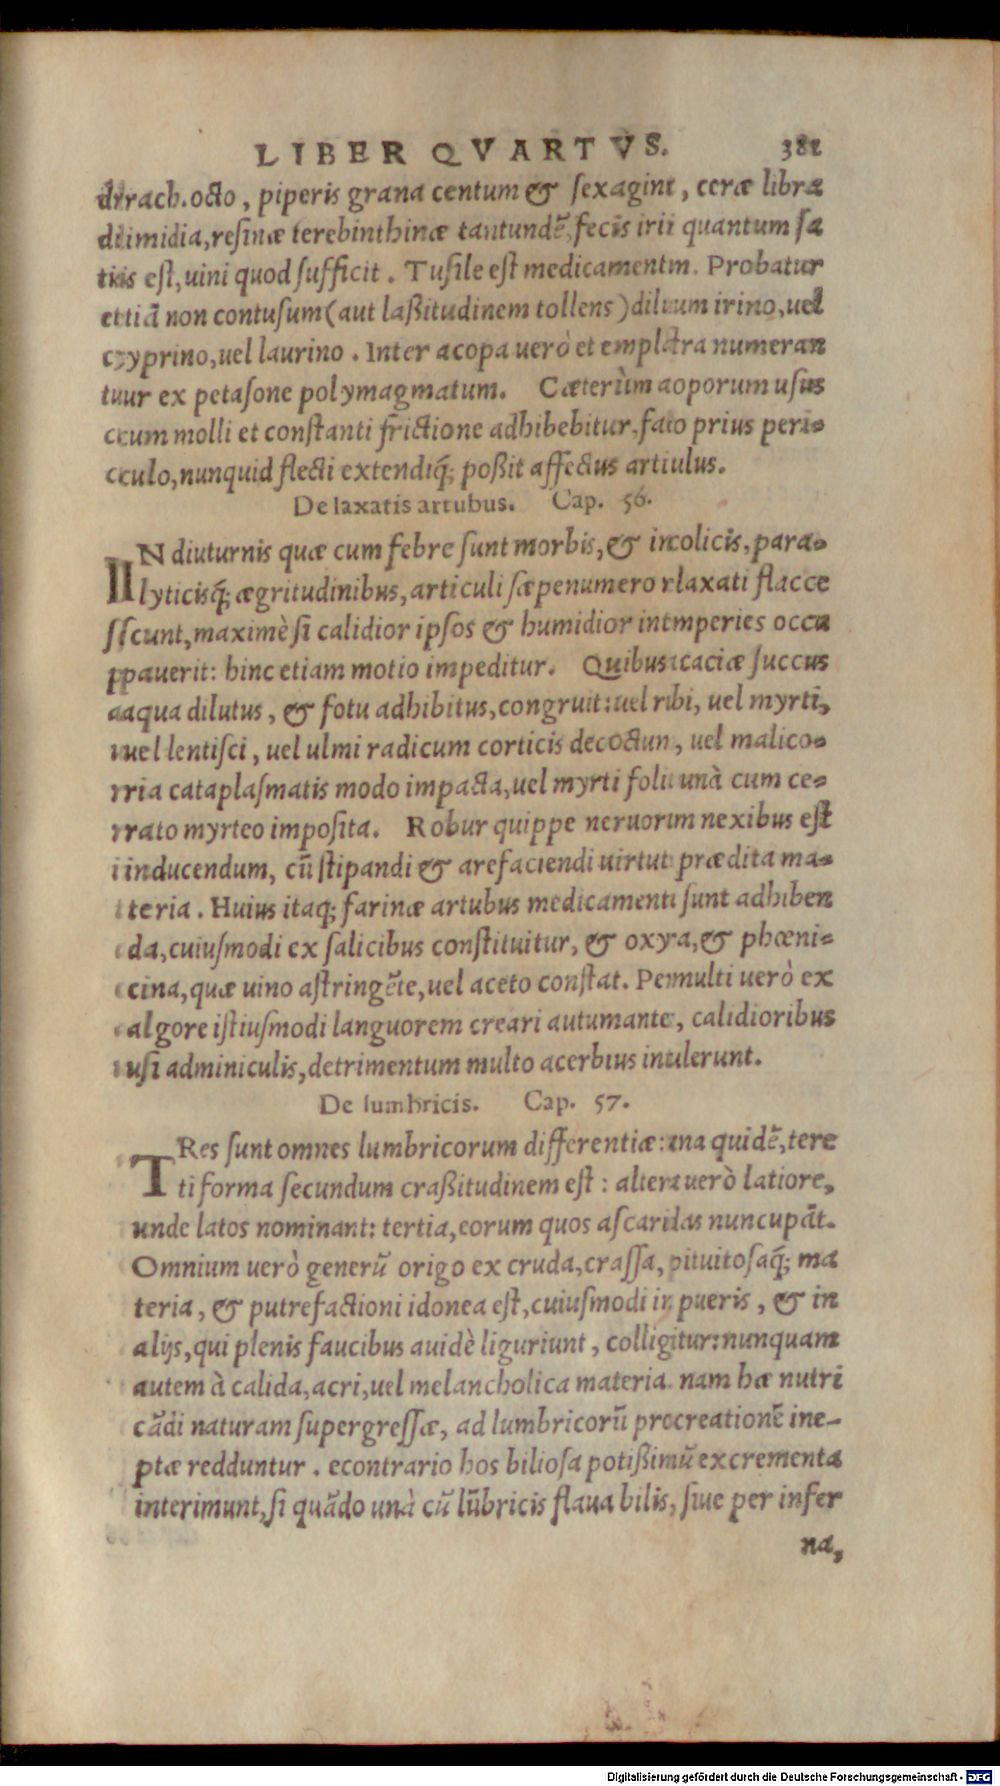 LIBER QVARTVS. 381
drach.octo, piperis grana centum & sexagint, ceræ libra
dimidia, resinæ terebinthinæ tantundẽ, fecis irii quantum sa
tis est, uini quod sufficit. Tusile est medicamentm. Probatur
etiã non contusum (aut laßitudinem tollens) dilutum irino, uel
cyprino, uel laurino. Inter acopa uerò et emplastra numeran
tur ex petasone polymagmatum. Cæterùm aoporum usus
cum molli et constanti frictione adhibebitur, facto prius peri-
culo, nunquid flecti extendiq́; poßit affectus artiulus.
De laxatis artubus. Cap. 56.
IN diuturnis quæ cum febre sunt morbis, & in colicis, para-
lyticisq́; ægritudinibus, articuli sæpenumero rlaxati flacce
scunt, maximè si calidior ipsos & humidior intmperies occu
pauerit: hinc etiam motio impeditur. Quibus acaciæ succus
aqua dilutus, & fotu adhibitus, congruit: uel rubi, uel myrti,
uel lentisci, uel ulmi radicum corticis decoctum, uel malico-
ria cataplasmatis modo impacta, uel myrti folia unà cum ce-
rato myrteo imposita. Robur quippe neruorum nexibus est
inducendum, cũ stipandi & arefaciendi uirtute prædita ma-
teria. Huius itaq; farinæ artubus medicamenti sunt adhiben
da, cuiusmodi ex salicibus constituitur, & oxyra, & phœni-
cina, quæ uino astringẽte, uel aceto constat. Permulti uerò ex
algore istiusmodi languorem creari autumantes, calidioribus
usi adminiculis, detrimentum multo acerbius intulerunt.
De lumbricis. Cap. 57.
TRes sunt omnes lumbricorum differentiæ: una quidẽ, tere
ti forma secundum craßitudinem est: altera uerò latiore,
unde latos nominant: tertia, eorum quos ascaridas nuncupãt.
Omnium uerò generũ origo ex cruda, crassa, pituitosaq́; ma
teria, & putrefactioni idonea est, cuiusmodi in pueris, & in
alijs, qui plenis faucibus auidè liguriunt, colligitur: nunquam
autem à calida, acri, uel melancholica materia. nam hæ nutri
cãdi naturam supergressæ, ad lumbricorũ procreationẽ ine-
ptæ redduntur. econtrario hos biliosa potißimũ excrementa
interimunt, si quãdo unà cũ lũbricis flaua bilis, siue per infer
na,
Digitalisierung gefördert durch die Deutsche Forschungsgemeinschaft - DFG